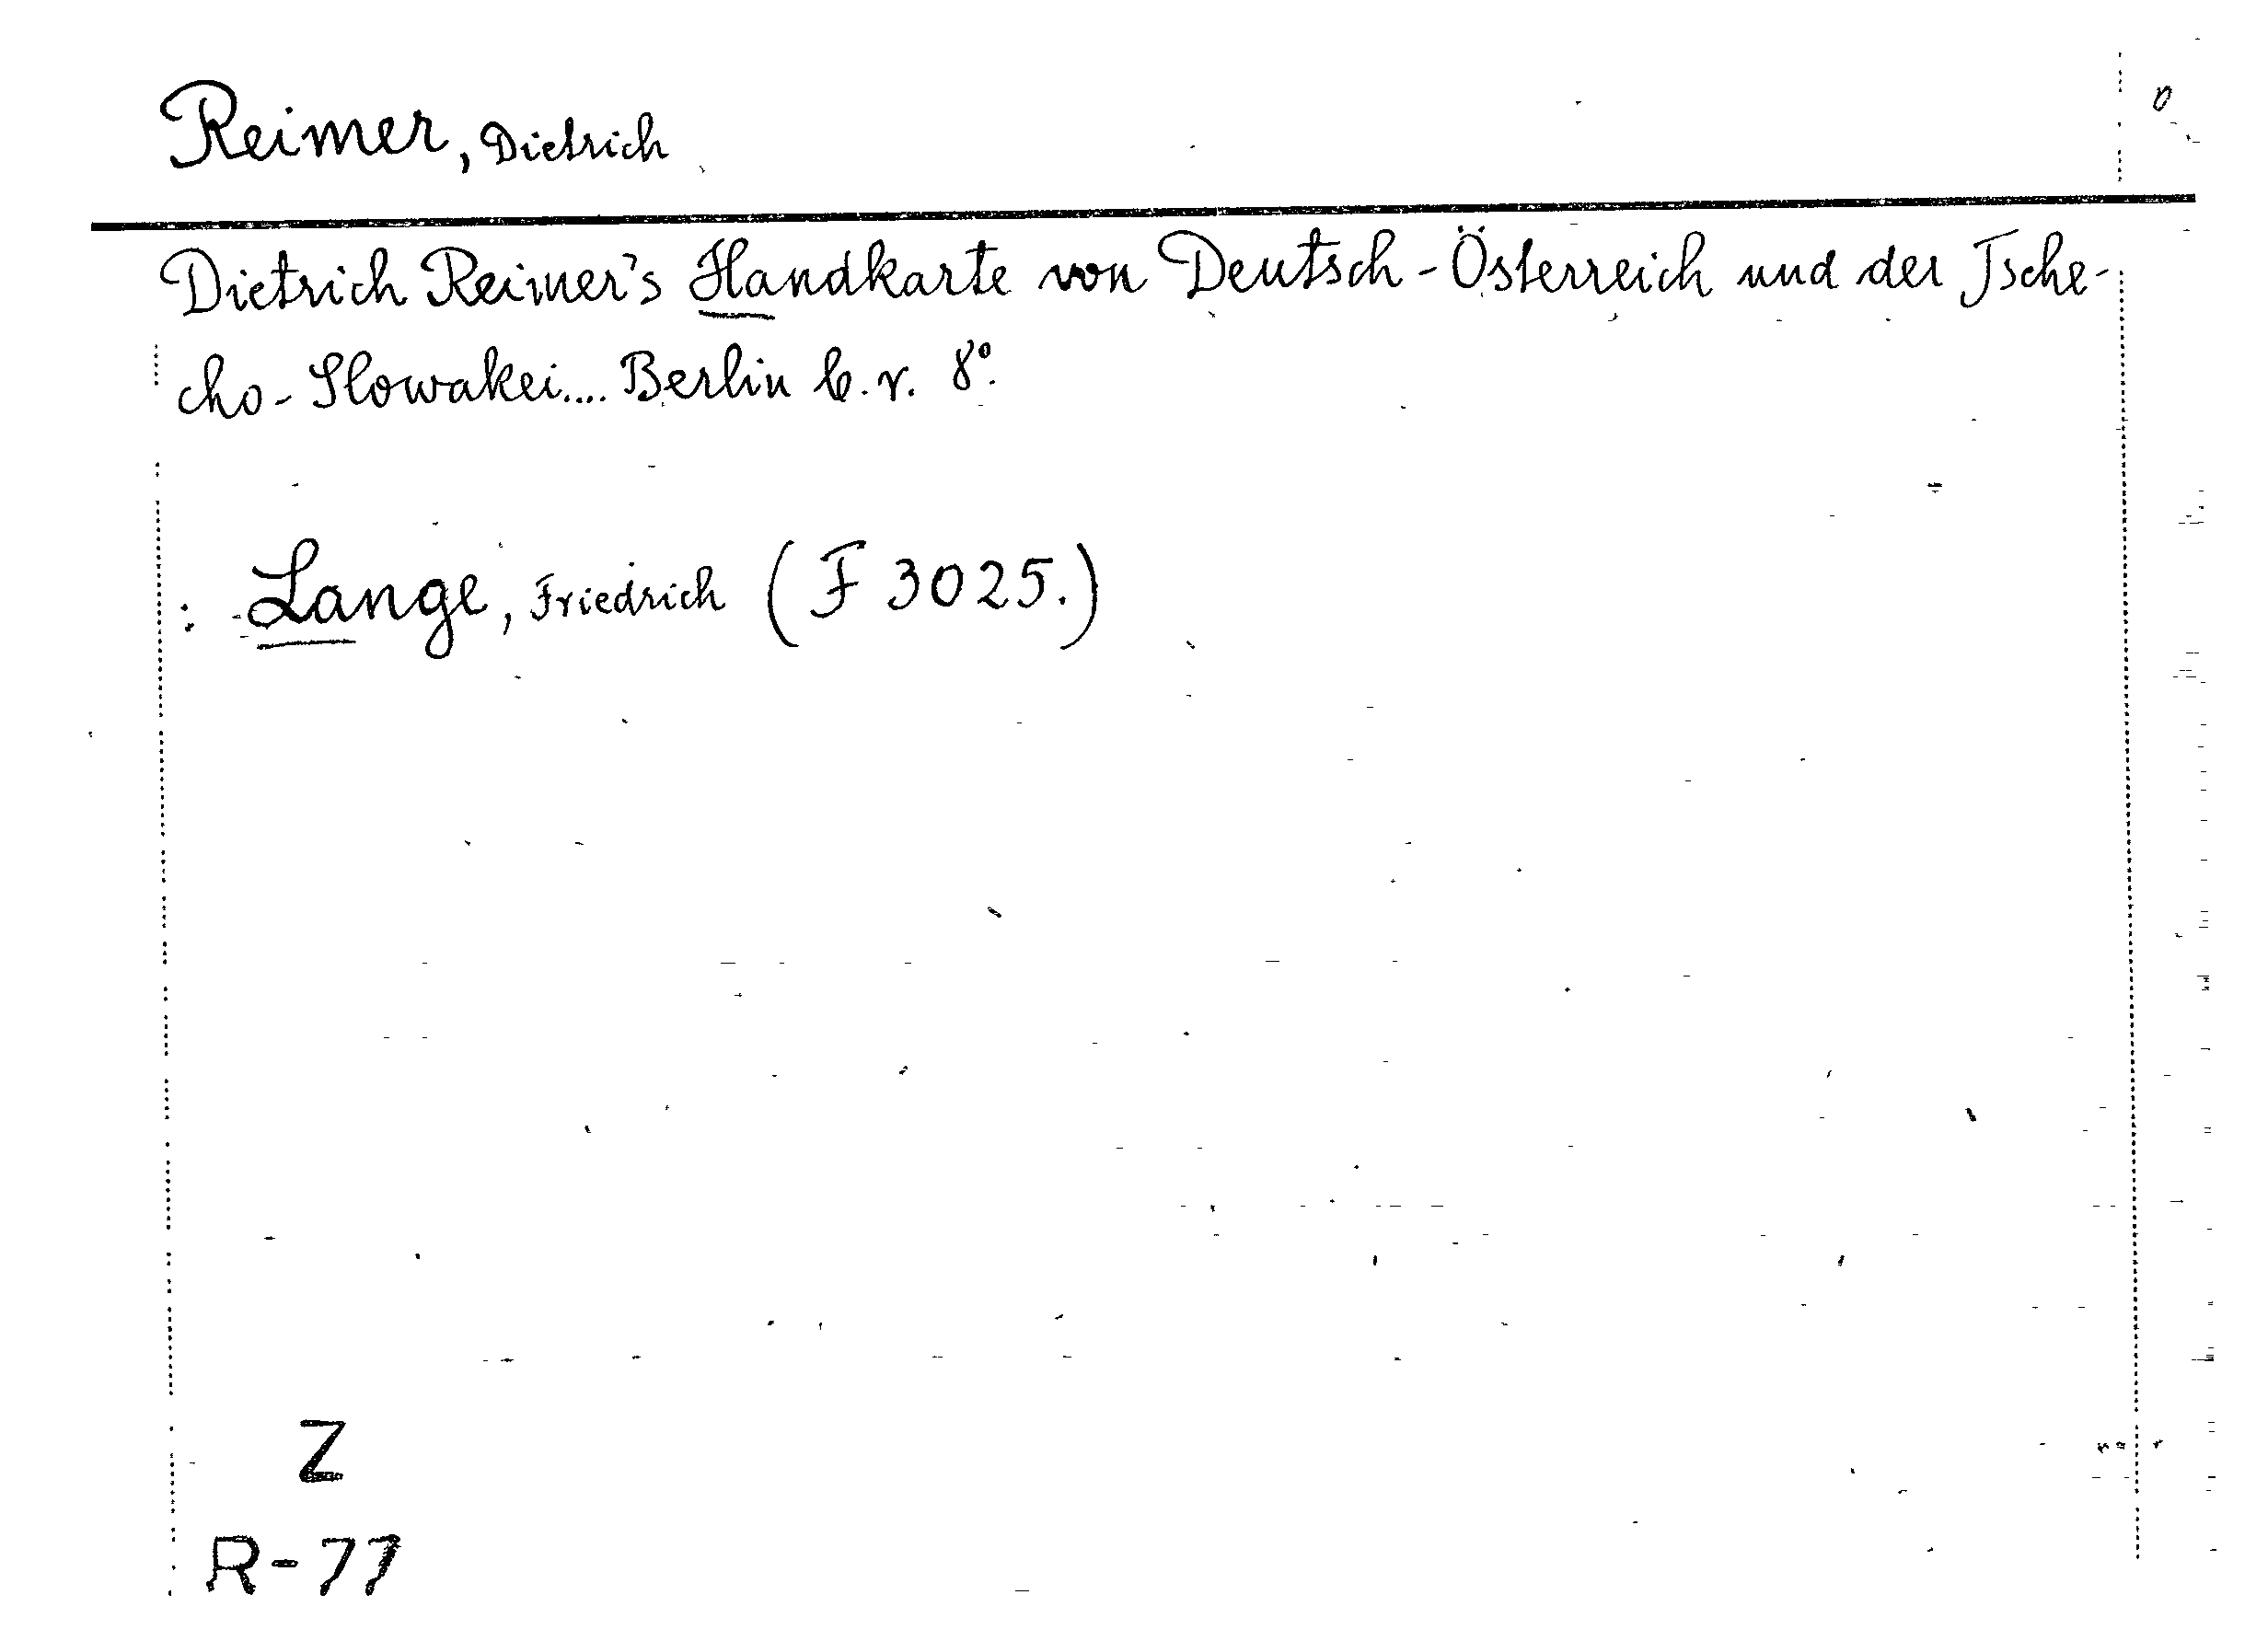 Reimer, Dietrich
Dietrich Reimer's Handkarte von Deutsch-Österreich und der Tsche-
cho-Slowakei.... Berlin b.r. 8º.
: Lange, Friedrich (F 3025.)
Z
R-77